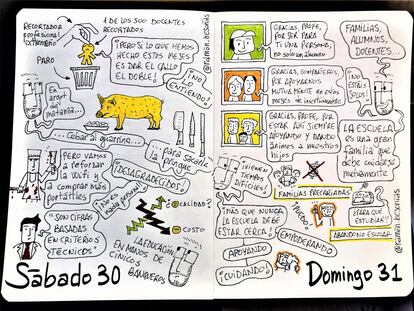 RECORTADOR
PROFESIONAL
EXTREMEÑO
1 DE LOS 300 DOCENTES
RECORTADOS
PARO
"¡PERO SI LO QUE HEMOS
HECHO ESTOS MESES
ES DAR EL CALLO
EL DOBLE!
¡NO
LO
ENTIENDO!
EN
ARGOT
DE
MATANZA...
...Cebar al guarrino...
...para sacarle
la pringue
¡DESAGRADECIDOS!
¡PERO VAMOS
A REFORZAR
LA WIFI Y
A COMPRAR MÁS
PORTÁTILES!
¡No es
nada personal!
CALIDAD?
COSTO
"SON CIFRAS
BASADAS
EN CRITERIOS
TÉCNICOS"
LA EDUCACIÓN
EN MANOS DE
CÍNICOS
BANQUEROS
Sábado 30
@ramon_besonias
GRACIAS, PROFE,
POR SER PARA
TI UNA PERSONA,
NO SOLO UN ALUMNO
GRACIAS, COMPAÑEROS,
POR APOYARNOS
MUTUAMENTE EN ESTOS
MESES DE INCERTIDUMBRE
GRACIAS, PROFE, POR
ESTAR AHÍ SIEMPRE
APOYANDO Y DANDO
ÁNIMOS A NUESTROS
HIJOS
FAMILIAS,
ALUMNOS,
DOCENTES...
¡NO
ESTÁIS
SOLOS!
LA ESCUELA
ES UNA GRAN
FAMILIA QUE
DEBE CUIDARSE
MUTUAMENTE
¡VIENEN
TIEMPOS
DIFÍCILES!
FAMILIAS PRECARIZADAS
¡MÁS QUE NUNCA
LA ESCUELA DEBE
ESTAR CERCA!
ESTUDIAR?
ABANDONO ESCOLAR
EMPODERANDO
APOYANDO
¡CUIDANDO!
Domingo 31
@ramon_besonias